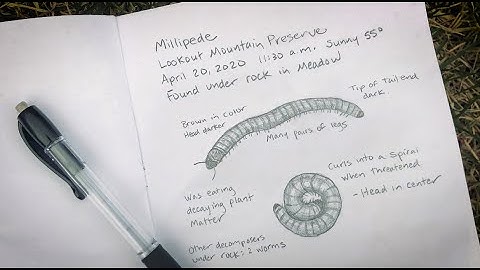 Millipede
Lookout Mountain Preserve
April 20, 2020 11:30 a.m. Sunny 55°
Found under rock in Meadow
Brown in color
Head darker
Many pairs of legs
Tip of Tail end
dark.
Was eating
decaying plant
Matter
Curls into a Spiral
when Threatened
- Head in center
Other decomposers
under rock: 2 worms